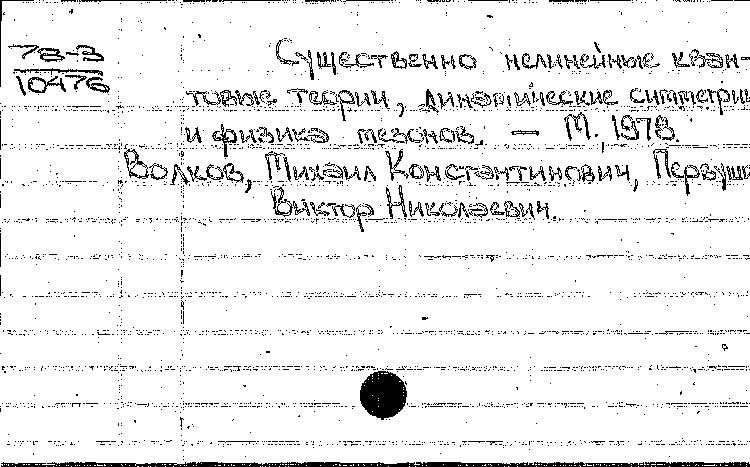 78-3
10476
Существенно нелинейные кван-
товые теории, динамические симметрии
и физика мезонов. — М., 1978.
Волков, Михаил Константинович, Первуши
Виктор Николаевич.